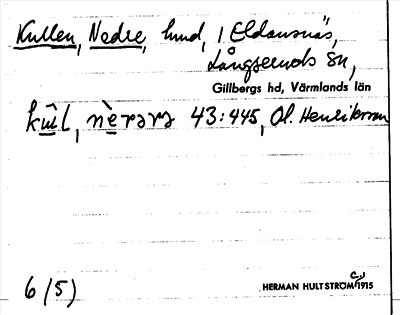 Kullen, Nedre, hmd, i Eldansnäs,
Långseruds sn,
Gillbergs hd, Värmlands län
43:445, Ol. Henriksson
6 (5)
HERMAN HULTSTRÖM 1915